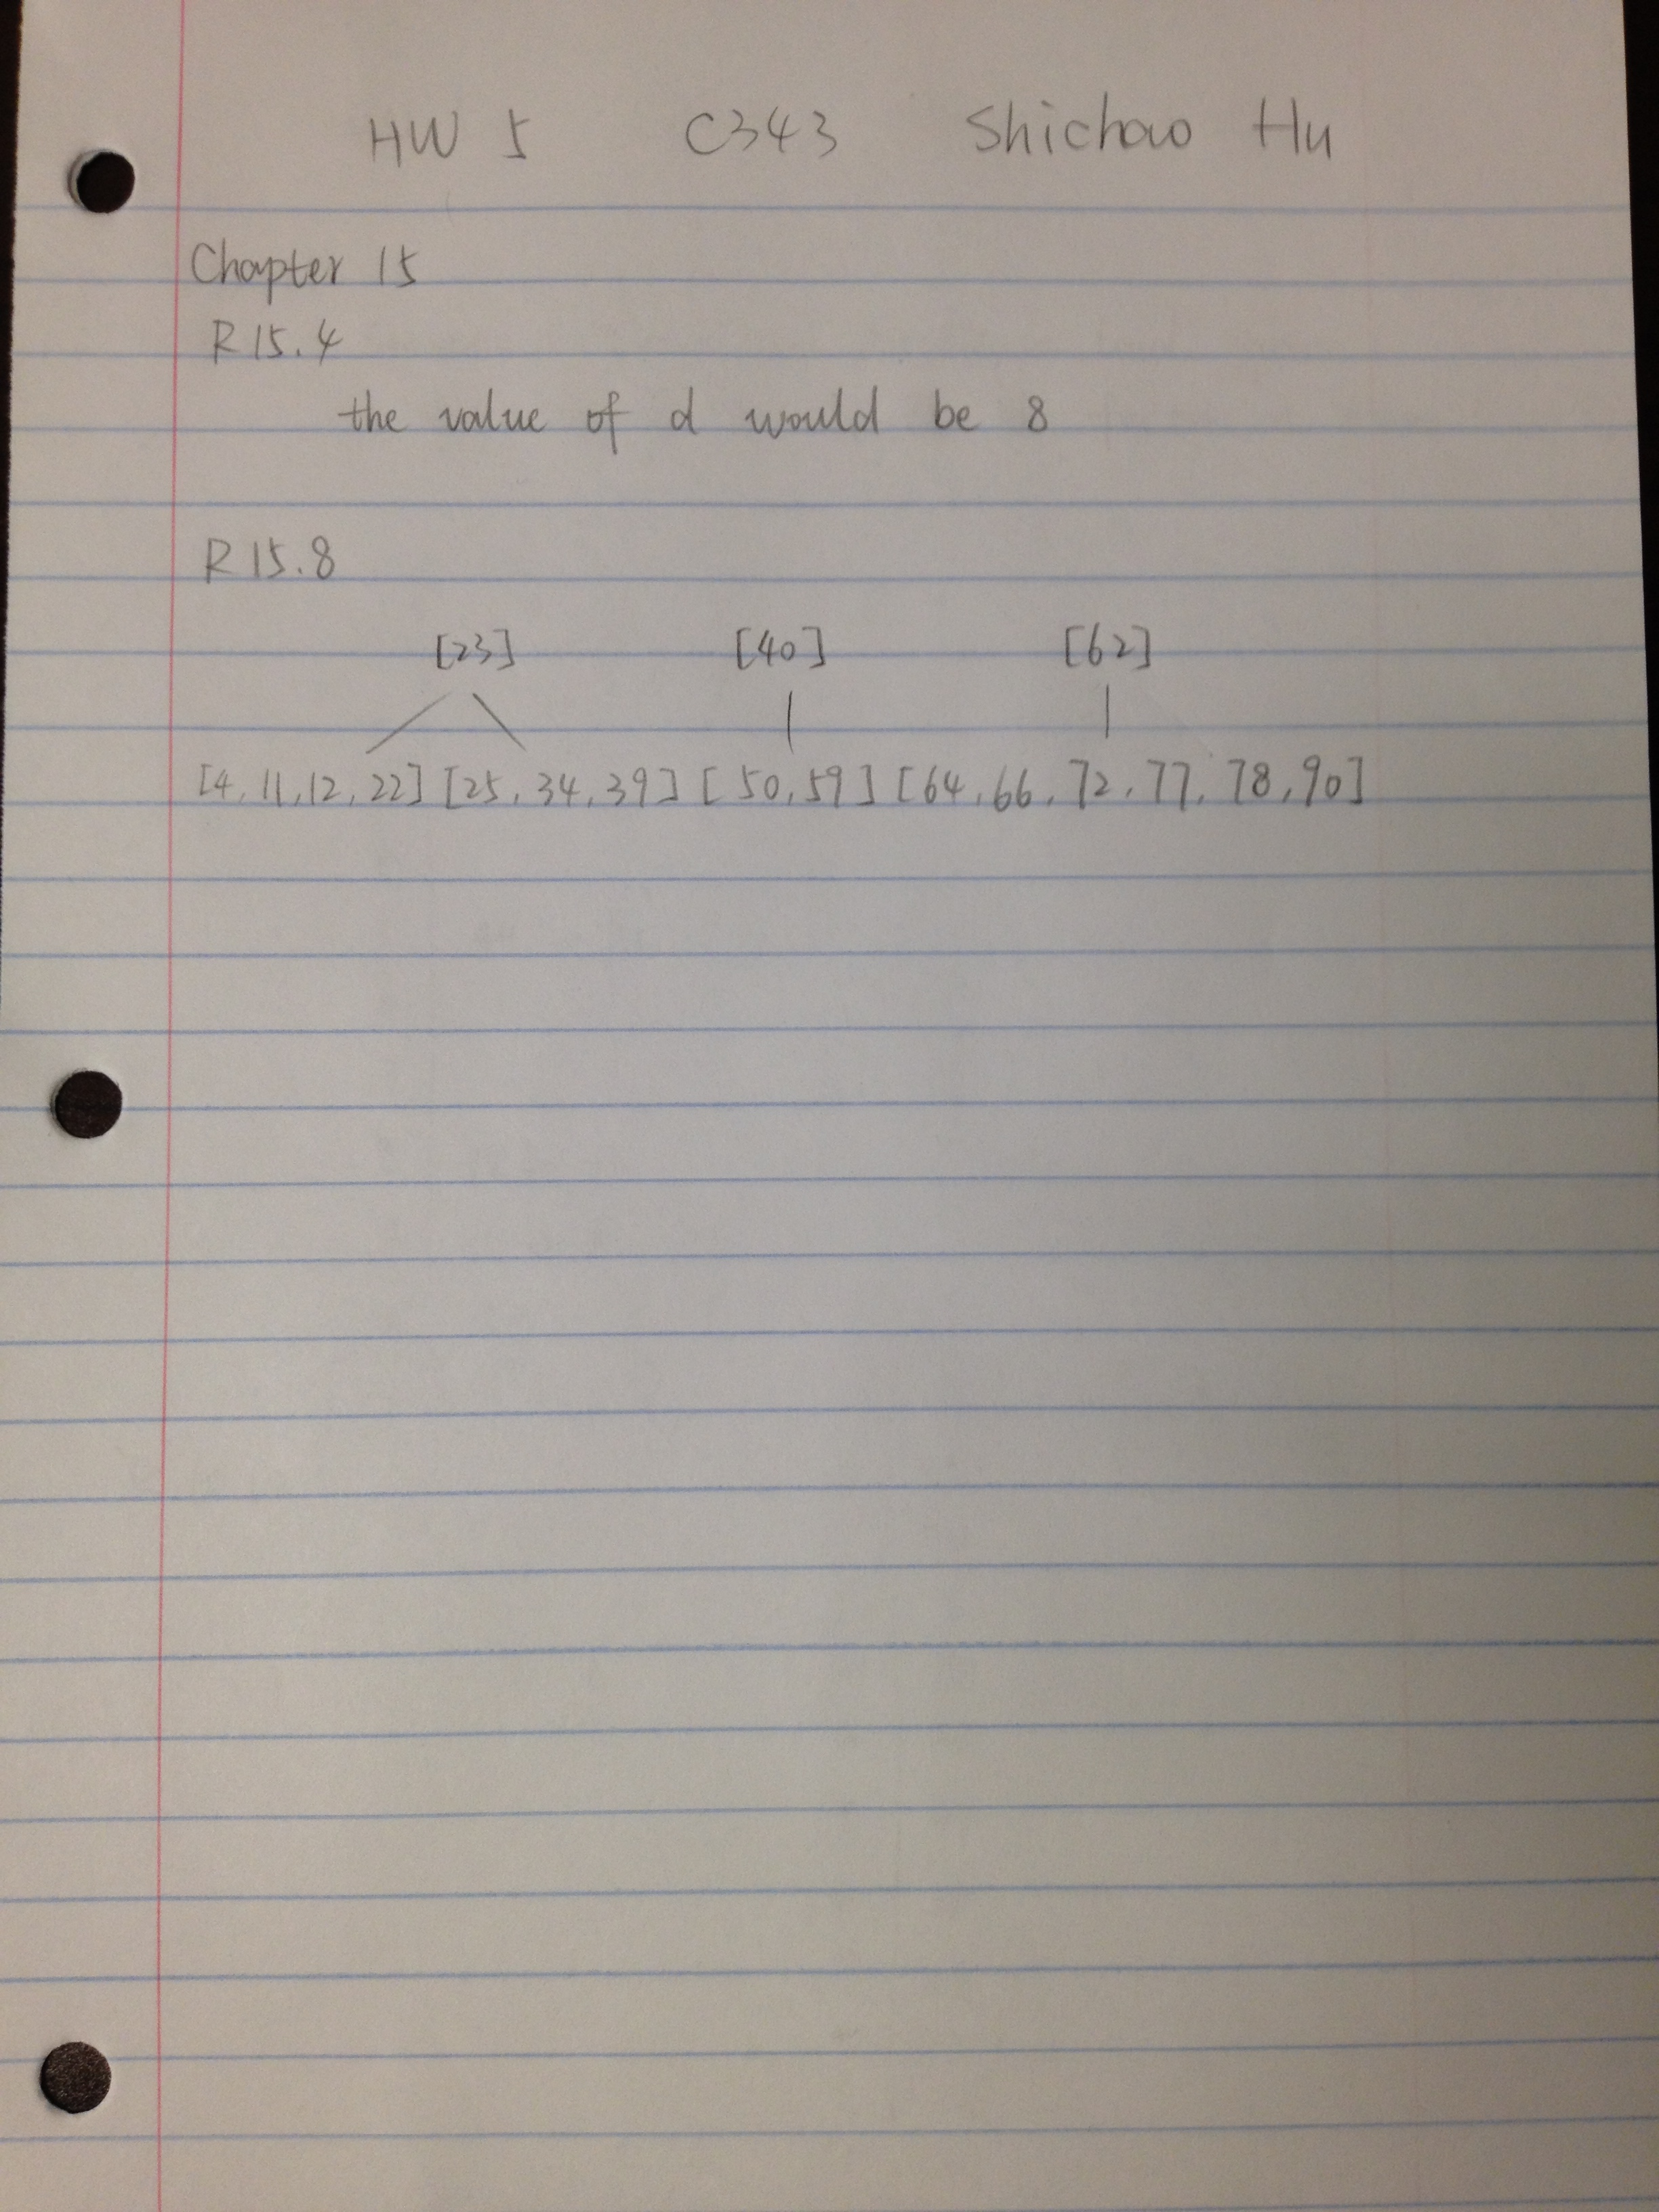 HW 5 C343 Shichao Hu
Chapter 15
R 15.4
the value of d would be 8
R 15.8
[23] [40] [62]
[4, 11, 12, 22] [25, 34, 39] [50, 59] [64, 66, 72, 77, 78, 90]